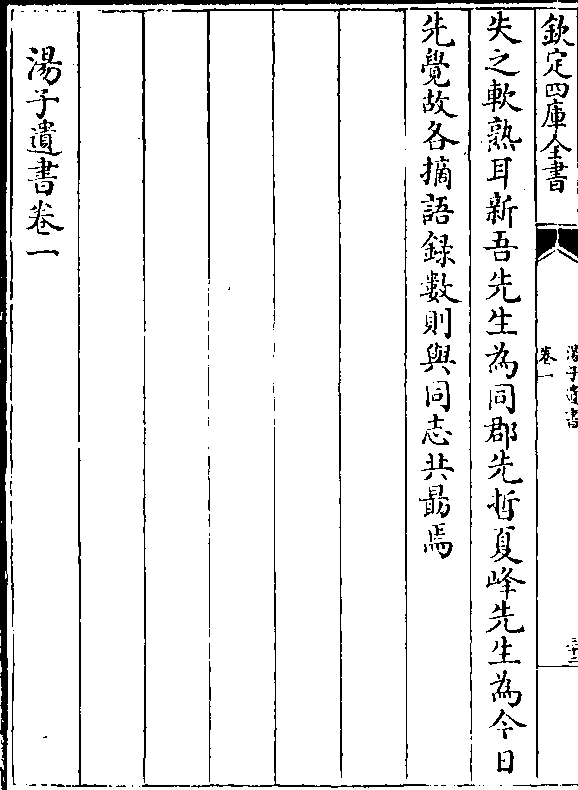 欽定四庫全書
湯子遺書
卷一
三十二
失之軟熟耳新吾先生為同郡先哲夏峰先生為今日
先覺故各摘語録數則與同志共勗焉
湯子遺書卷一